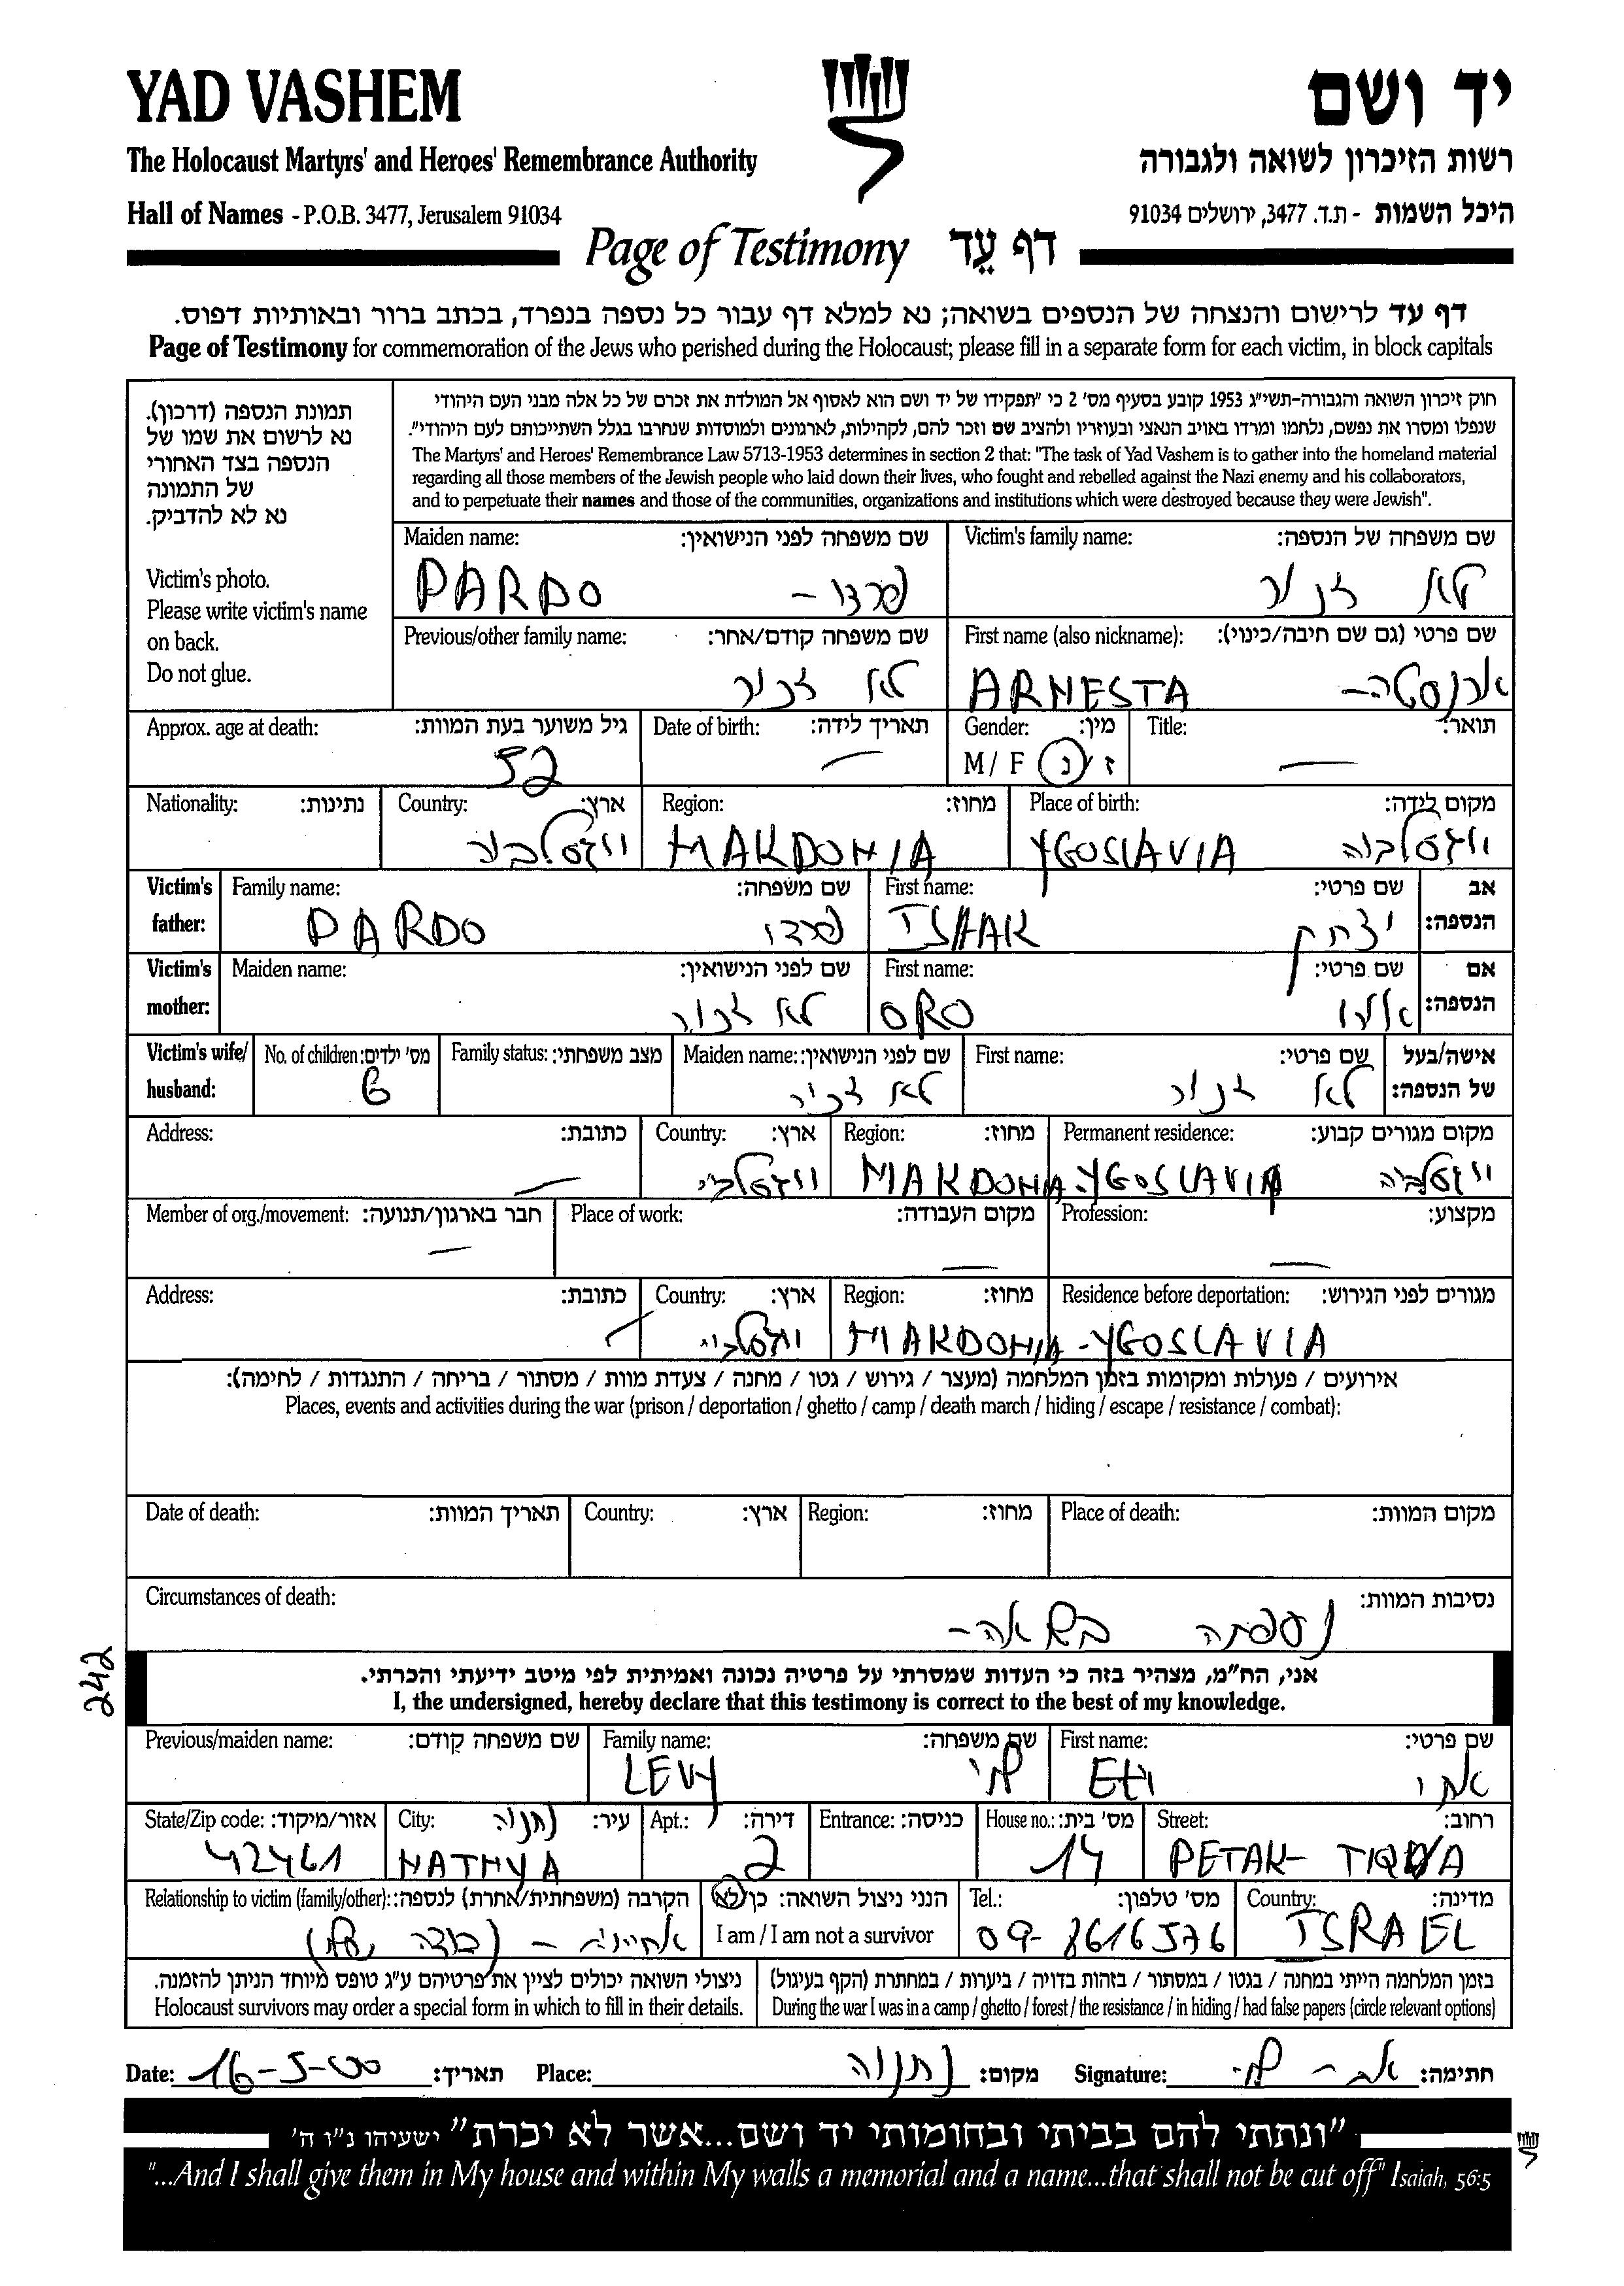 YAD VASHEM
יד ושם
The Holocaust Martyrs' and Heroes' Remembrance Authority
רשות הזיכרון לשואה ולגבורה
Hall of Names - P.O.B. 3477, Jerusalem 91034
היכל השמות - ת.ד. 3477, ירושלים 91034
Page of Testimony דף עֵד
דף עד לרישום והנצחה של הנספים בשואה; נא למלא דף עבור כל נספה בנפרד, בכתב ברור ובאותיות דפוס.
Page of Testimony for commemoration of the Jews who perished during the Holocaust; please fill in a separate form for each victim, in block capitals
תמונת הנספה (דרכון).
נא לרשום את שמו של
הנספה בצד האחורי
של התמונה
נא לא להדביק.
Victim's photo.
Please write victim's name
on back.
Do not glue.
חוק זיכרון השואה והגבורה-תשי"ג 1953 קובע בסעיף מס' 2 כי "תפקידו של יד ושם הוא לאסוף אל המולדת את זכרם של כל אלה מבני העם היהודי
שנפלו ומסרו את נפשם, נלחמו ומרדו באויב הנאצי ובעוזריו ולהציב שם וזכר להם, לקהילות, לארגונים ולמוסדות שנחרבו בגלל השתייכותם לעם היהודי".
The Martyrs' and Heroes' Remembrance Law 5713-1953 determines in section 2 that: "The task of Yad Vashem is to gather into the homeland material
regarding all those members of the Jewish people who laid down their lives, who fought and rebelled against the Nazi enemy and his collaborators,
and to perpetuate their names and those of the communities, organizations and institutions which were destroyed because they were Jewish".
Victim's family name: שם משפחה של הנספה:
לא זכור
Maiden name: שם משפחה לפני הנישואין:
PARDO פרדו -
First name (also nickname): שם פרטי (גם שם חיבה/כינוי):
ARNESTA ארנסטה-
Previous/other family name: שם משפחה קודם/אחר:
לא זכור
Title: תואר:
—
Gender: מין:
M / F ז / נ
Date of birth: תאריך לידה:
—
Approx. age at death: גיל משוער בעת המוות:
52
Place of birth: מקום לידה:
YGOSLAVIA יוגוסלביה
Region: מחוז:
MAKDONIA
Country: ארץ:
Nationality: נתינות:
Victim's father: אב הנספה:
First name: שם פרטי:
ISHAK יצחק
Family name: שם משפחה:
PARDO פרדו
Victim's mother: אם הנספה:
First name: שם פרטי:
ORO אורו
Maiden name: שם לפני הנישואין:
לא זכור
Victim's wife/ husband: אישה/בעל של הנספה:
First name: שם פרטי:
לא זכור
Maiden name: שם לפני הנישואין:
לא זכור
Family status: מצב משפחתי:
No. of children: מס' ילדים:
6
Permanent residence: מקום מגורים קבוע:
YGOSLAVIA
Region: מחוז:
MAKDONIA
Country: ארץ:
Address: כתובת:
—
Profession: מקצוע:
—
Place of work: מקום העבודה:
—
Member of org./movement: חבר בארגון/תנועה:
—
Residence before deportation: מגורים לפני הגירוש:
YGOSLAVIA
Region: מחוז:
MAKDONIA -
Country: ארץ:
Address: כתובת:
—
אירועים / פעולות ומקומות בזמן המלחמה (מעצר / גירוש / גטו / מחנה / צעדת מוות / מסתור / בריחה / התנגדות / לחימה):
Places, events and activities during the war (prison / deportation / ghetto / camp / death march / hiding / escape / resistance / combat):
Place of death: מקום המוות:
Region: מחוז:
Country: ארץ:
Date of death: תאריך המוות:
Circumstances of death: נסיבות המוות:
נספתה בשואה-
242
אני, הח"מ, מצהיר בזה כי העדות שמסרתי על פרטיה נכונה ואמיתית לפי מיטב ידיעתי והכרתי.
I, the undersigned, hereby declare that this testimony is correct to the best of my knowledge.
First name: שם פרטי:
Eti אתי
Family name: שם משפחה:
LEVY לוי
Previous/maiden name: שם משפחה קודם:
Street: רחוב:
PETAK- TIQVA
House no.: מס' בית:
14
Entrance: כניסה:
Apt.: דירה:
2
City: עיר:
נתניה
NATNYA
State/Zip code: אזור/מיקוד:
42461
Country: מדינה:
ISRAEL
Tel.: מס' טלפון:
09- 8616576
הנני ניצול השואה: כן/לא
I am / I am not a survivor
Relationship to victim (family/other): הקרבה (משפחתית/אחרת) לנספה:
אחיינית -
בזמן המלחמה הייתי במחנה / בגטו / במסתור / בזהות בדויה / ביערות / במחתרת (הקף בעיגול)
During the war I was in a camp / ghetto / forest / the resistance / in hiding / had false papers (circle relevant options)
ניצולי השואה יכולים לציין את פרטיהם ע"ג טופס מיוחד הניתן להזמנה.
Holocaust survivors may order a special form in which to fill in their details.
Date: 16-5-00 תאריך: Place: נתניה מקום: Signature: אתי - לוי חתימה:
"ונתתי להם בביתי ובחומותי יד ושם...אשר לא יכרת" ישעיהו נ"ו ה'
"...And I shall give them in My house and within My walls a memorial and a name...that shall not be cut off" Isaiah, 56:5